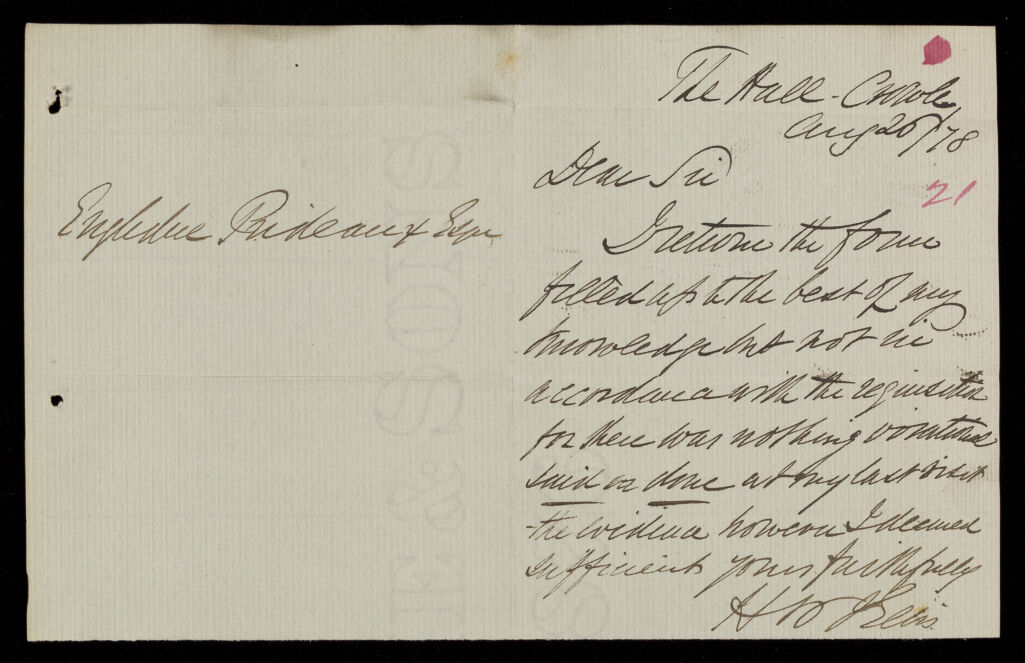 Engledue Prideaux Esqre
The Hall - Crowle
Aug 26/78
21
Dear Sir
I return the form
filled up to the best of my
knowledge but not in
accordance with the requisition
for there was nothing
said or done at my last visit
the evidence however I deemed
sufficient yours faithfully
H W
E & SONS